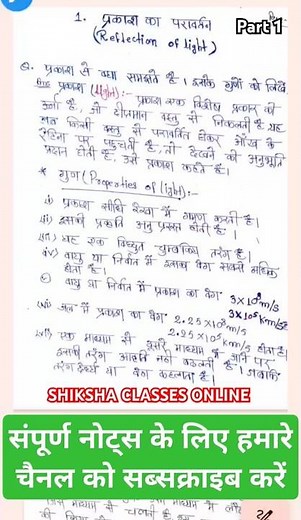 Part 1
1. प्रकाश का परावर्तन
(Reflection of light)
Q. प्रकाश से क्या समझते है। इसके गुणों को लिखें
Ans प्रकाश (light):- प्रकाश एक विशेष प्रकार की
ऊर्जा है, जो दीप्तमान वस्तु से निकलती है यह
जब किसी वस्तु से परावर्तित होकर आँख के
रेटिना पर पहुँचती है, तो देखने की अनुभूति
प्रदान होती है, उसे प्रकाश कहते है।
* गुण (Properties of light):-
i) प्रकाश सीधी रेखा में गमन करती है।
ii) इसकी प्रकृति अनुप्रस्त होती है।
iii) यह एक विद्युत चुम्बकीय तरंग है।
iv) वायु या निर्वात में इसका वेग सबसे अधिक
होता है।
वायु या निर्वात में प्रकाश का वेग 3×10⁸m/s
3×10⁵ Km/s
जल में प्रकाश का वेग 2.25×10⁸m/s
2.25×10⁵ होता है।
एक माध्यम से दूसरे माध्यम में जाने पर
इसकी तरंग आवृति नहीं बदलती है। जबकि
तरंगदैर्ध्य या वेग बदलता है।
SHIKSHA CLASSES ONLINE
संपूर्ण नोट्स के लिए हमारे
चैनल को सब्सक्राइब करें